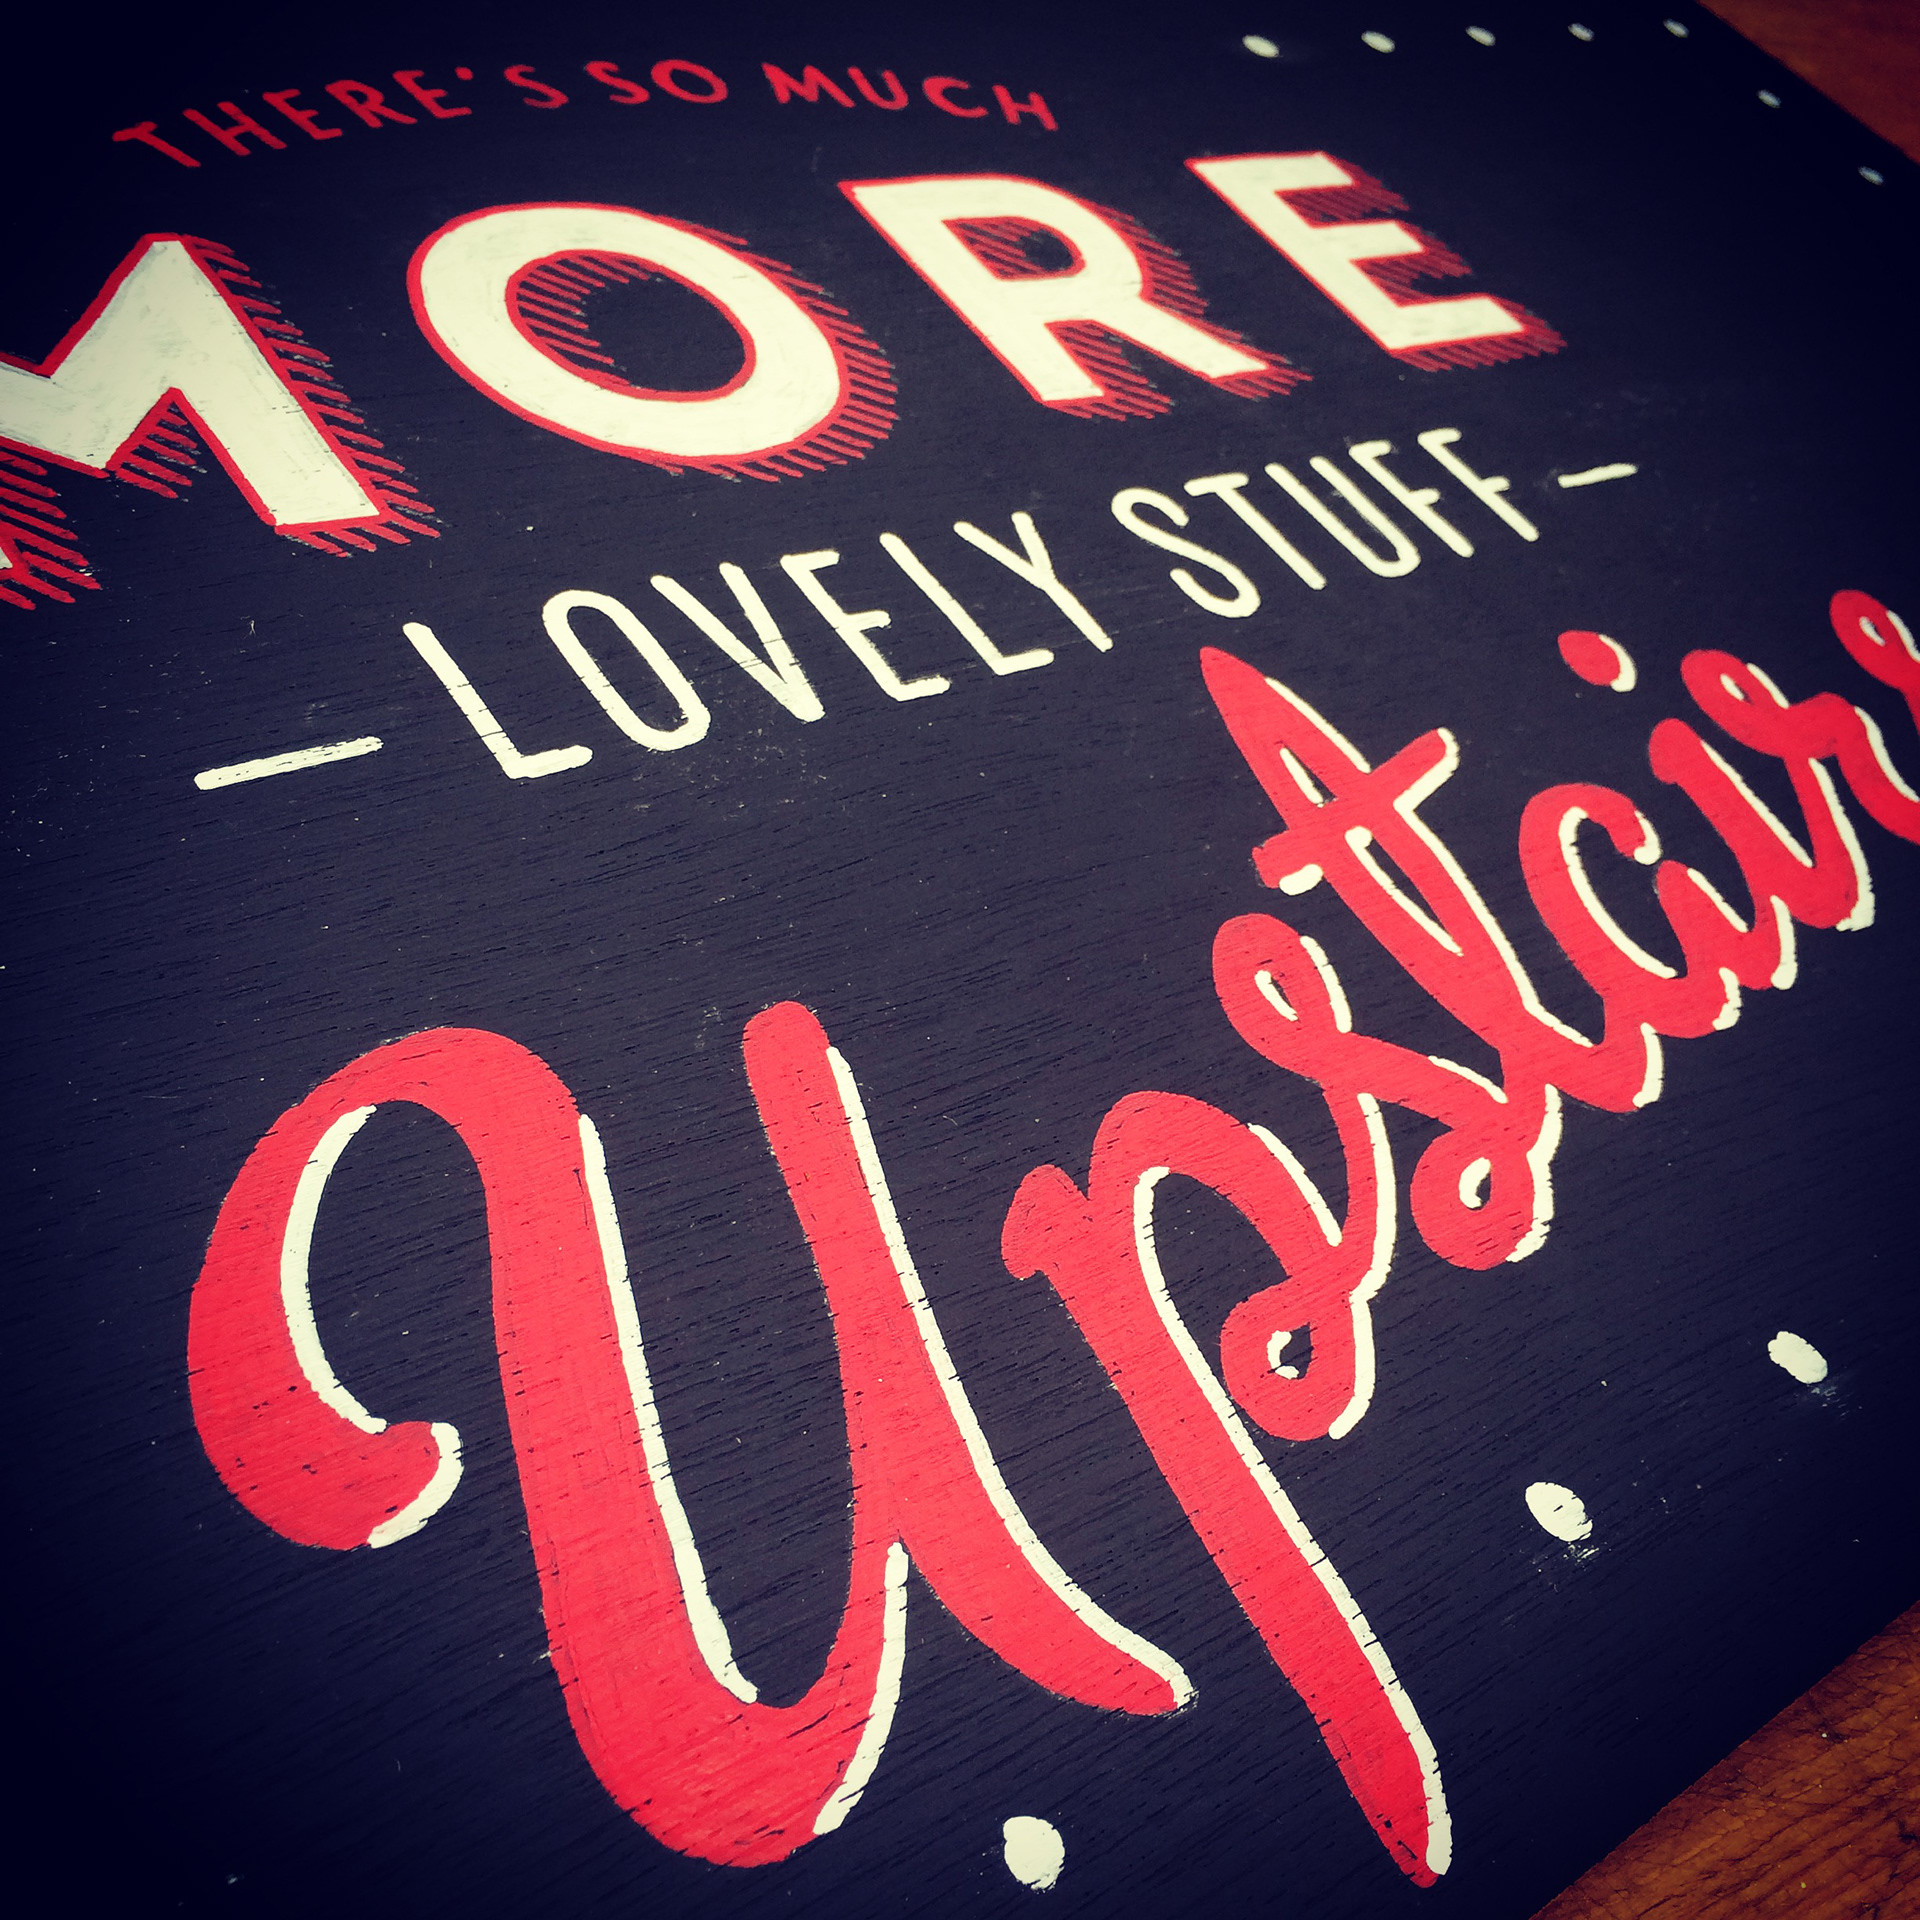 THERE'S SO MUCH
MORE
— LOVELY STUFF —
Upstairs